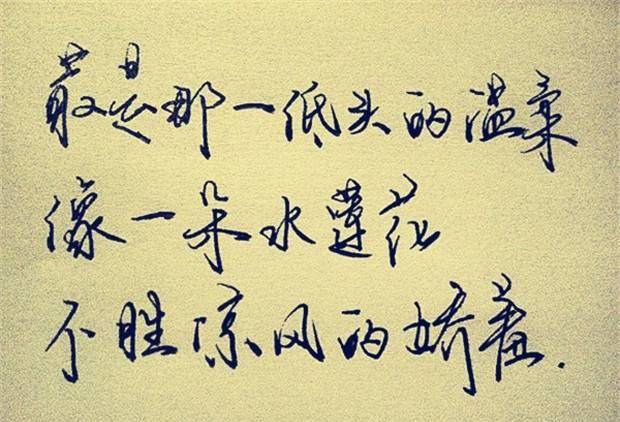 最是那一低头的温柔
像一朵水莲花
不胜凉风的娇羞.